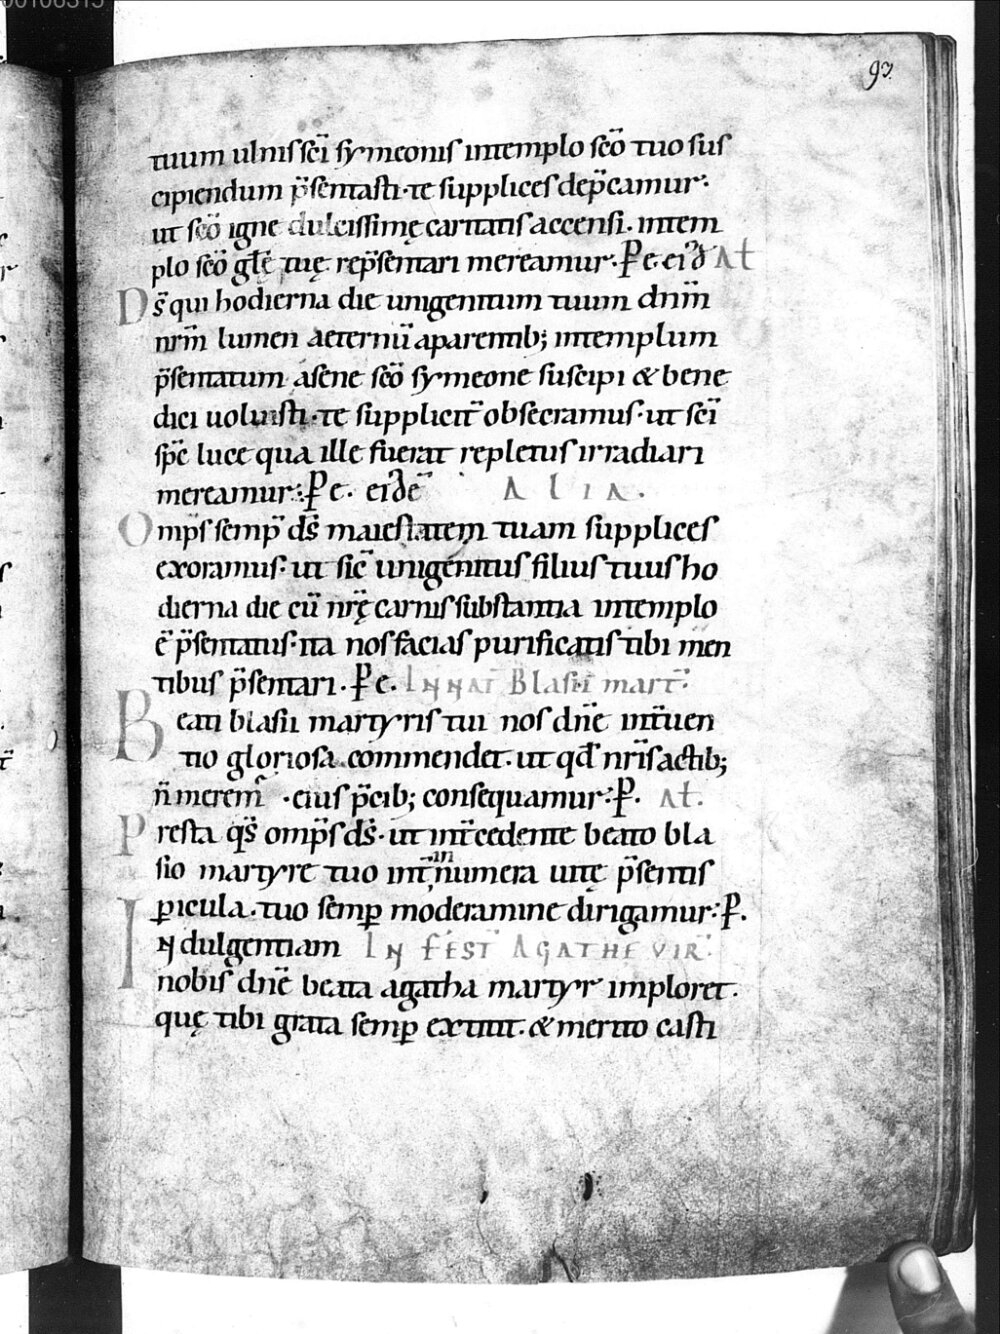 93
tuum ulnis sc̄i symeonis intemplo scō tuo sus
cipiendum p̄sentasti· te supplices dep̄camur·
ut scō igne dulcissimę caritatis accensi· intem
plo scō gl̄ę tuę rep̄sentari mereamur· P̲ e. eiđ Aɫ
Ds̄ qui hodierna die unigenitum tuum dnm̄
nrm̄ lumen aeternū aparentib; intemplum
p̄sentatum ásene scō symeone suscipi & bene
dici uoluisti· te suppliciт̄ obsecramus· ut sc̄i
sp̄c luce qua ille fuerat repletus irradiari
mereamur· P̲ e. eiđē ALIA.
Omp̄s semp̄ ds̄ maiestatem tuam supplices
exoramus· ut sic̄ unigenitus filius tuus ho
dierna die cū nrę̄ carnis substantia intemplo
ē p̄sentatus· ita nos facias purificatis tibi men
tibus p̄sentari. P̲ e. IN NAT̄ Blasii mart̄.
Beati blasii martyris tui nos dn̄e int̄uen
tio gloriosa commendet. ut qđ nrīs actib;
n̄ merem̄ . eius p̄cib; consequamur· P̲. Aɫ.
Presta qs̄ omp̄s ds̄· ut int̄cedente beato bla
sio martyre tuo int̄ in numera uitę p̄sentis
ꝑicula. tuo semꝑ moderamine dirigamur· P̲.
INdulgentiam IN FEST̄ AGATHE VIR̄.
nobis dn̄e beata agatha martyr imploret.
quę tibi grata semꝑ extitit. & merito casti